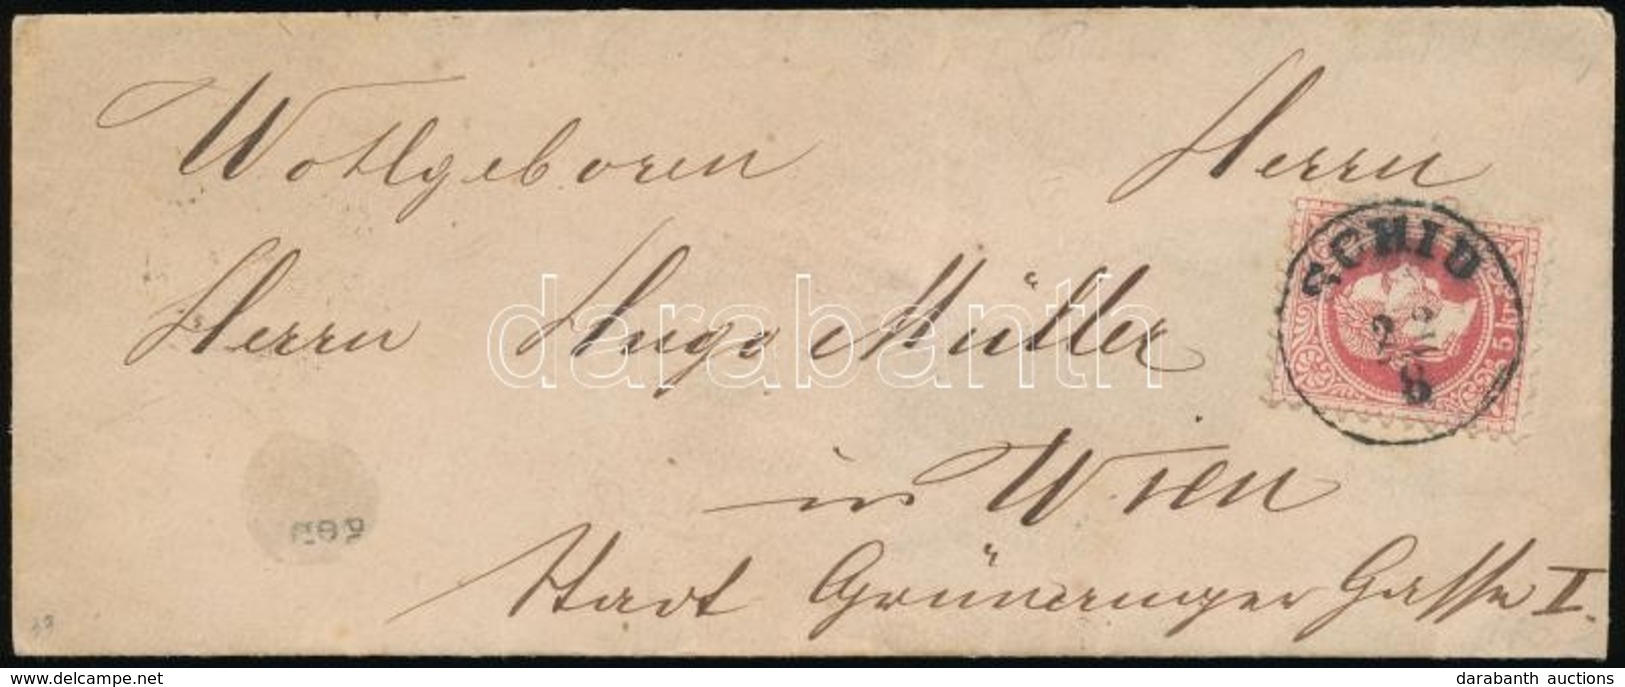 Wohlgeboren Herrn
Herrn Hugo Müller
in Wien
Stadt Grünanger Gasse I.
SCHIO
22
8
5 kr
darabanth
www.delcampe.net
darabanth auctions